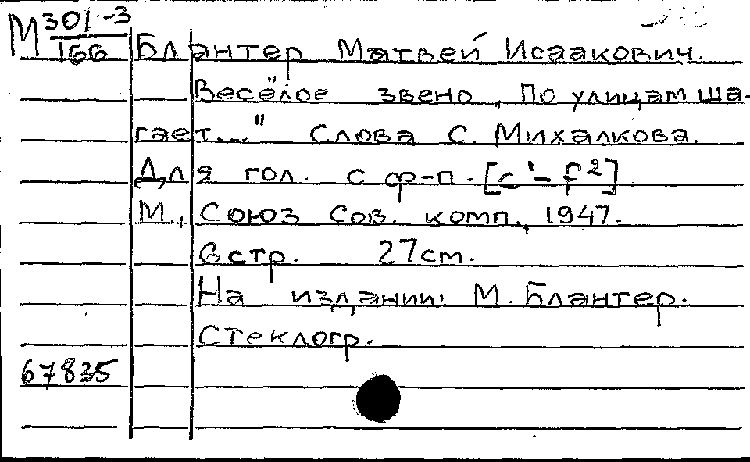 М 301-3
166
Блантер Матвей Исаакович.
Весёлое звено „По улицам ша-
гает...." Слова С. Михалкова.
Для гол. с ф-п. [c¹-f²]
М., Союз Сов. комп., 1947.
6 стр. 27 см.
На издании: М. Блантер.
Стеклогр.
67835